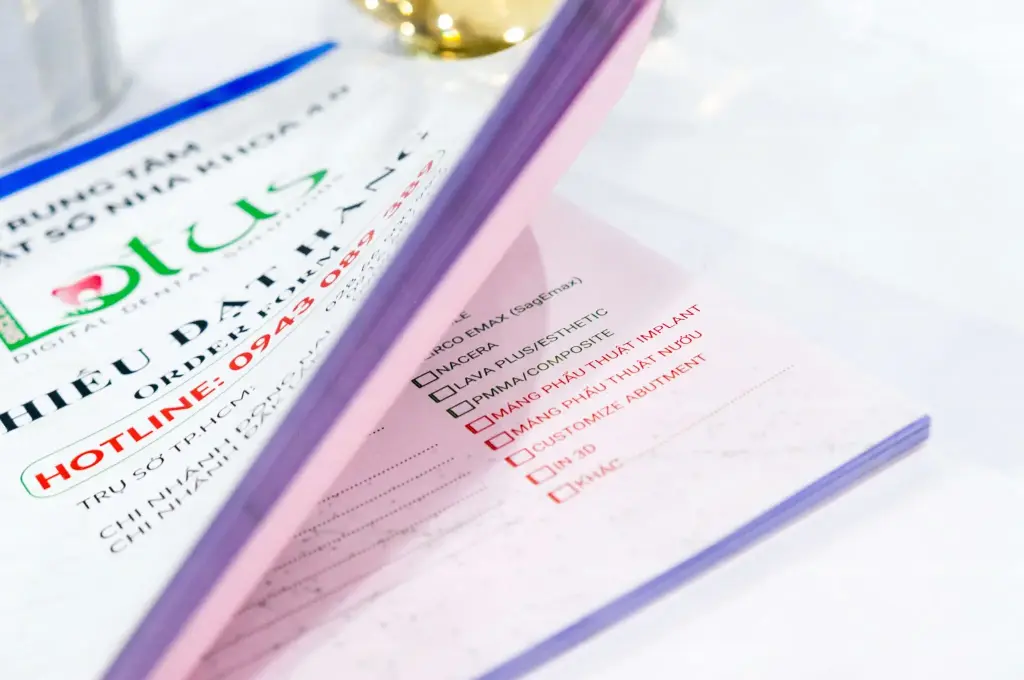 TRUNG TÂM
SỐ NHA KHOA 4.0
Lotus
DIGITAL DENTAL SOLUTIONS
HIẾU ĐẶT HÀNG
ORDER FORM
HOTLINE: 0943 089 389
TRỤ SỞ TP.HCM:
CHI NHÁNH ĐỒNG NAI
CHI NHÁNH
RCO EMAX (SagEmax)
NACERA
LAVA PLUS/ESTHETIC
PMMA/COMPOSITE
MÁNG PHẪU THUẬT IMPLANT
MÁNG PHẪU THUẬT NƯỚU
CUSTOMIZE ABUTMENT
IN 3D
KHÁC